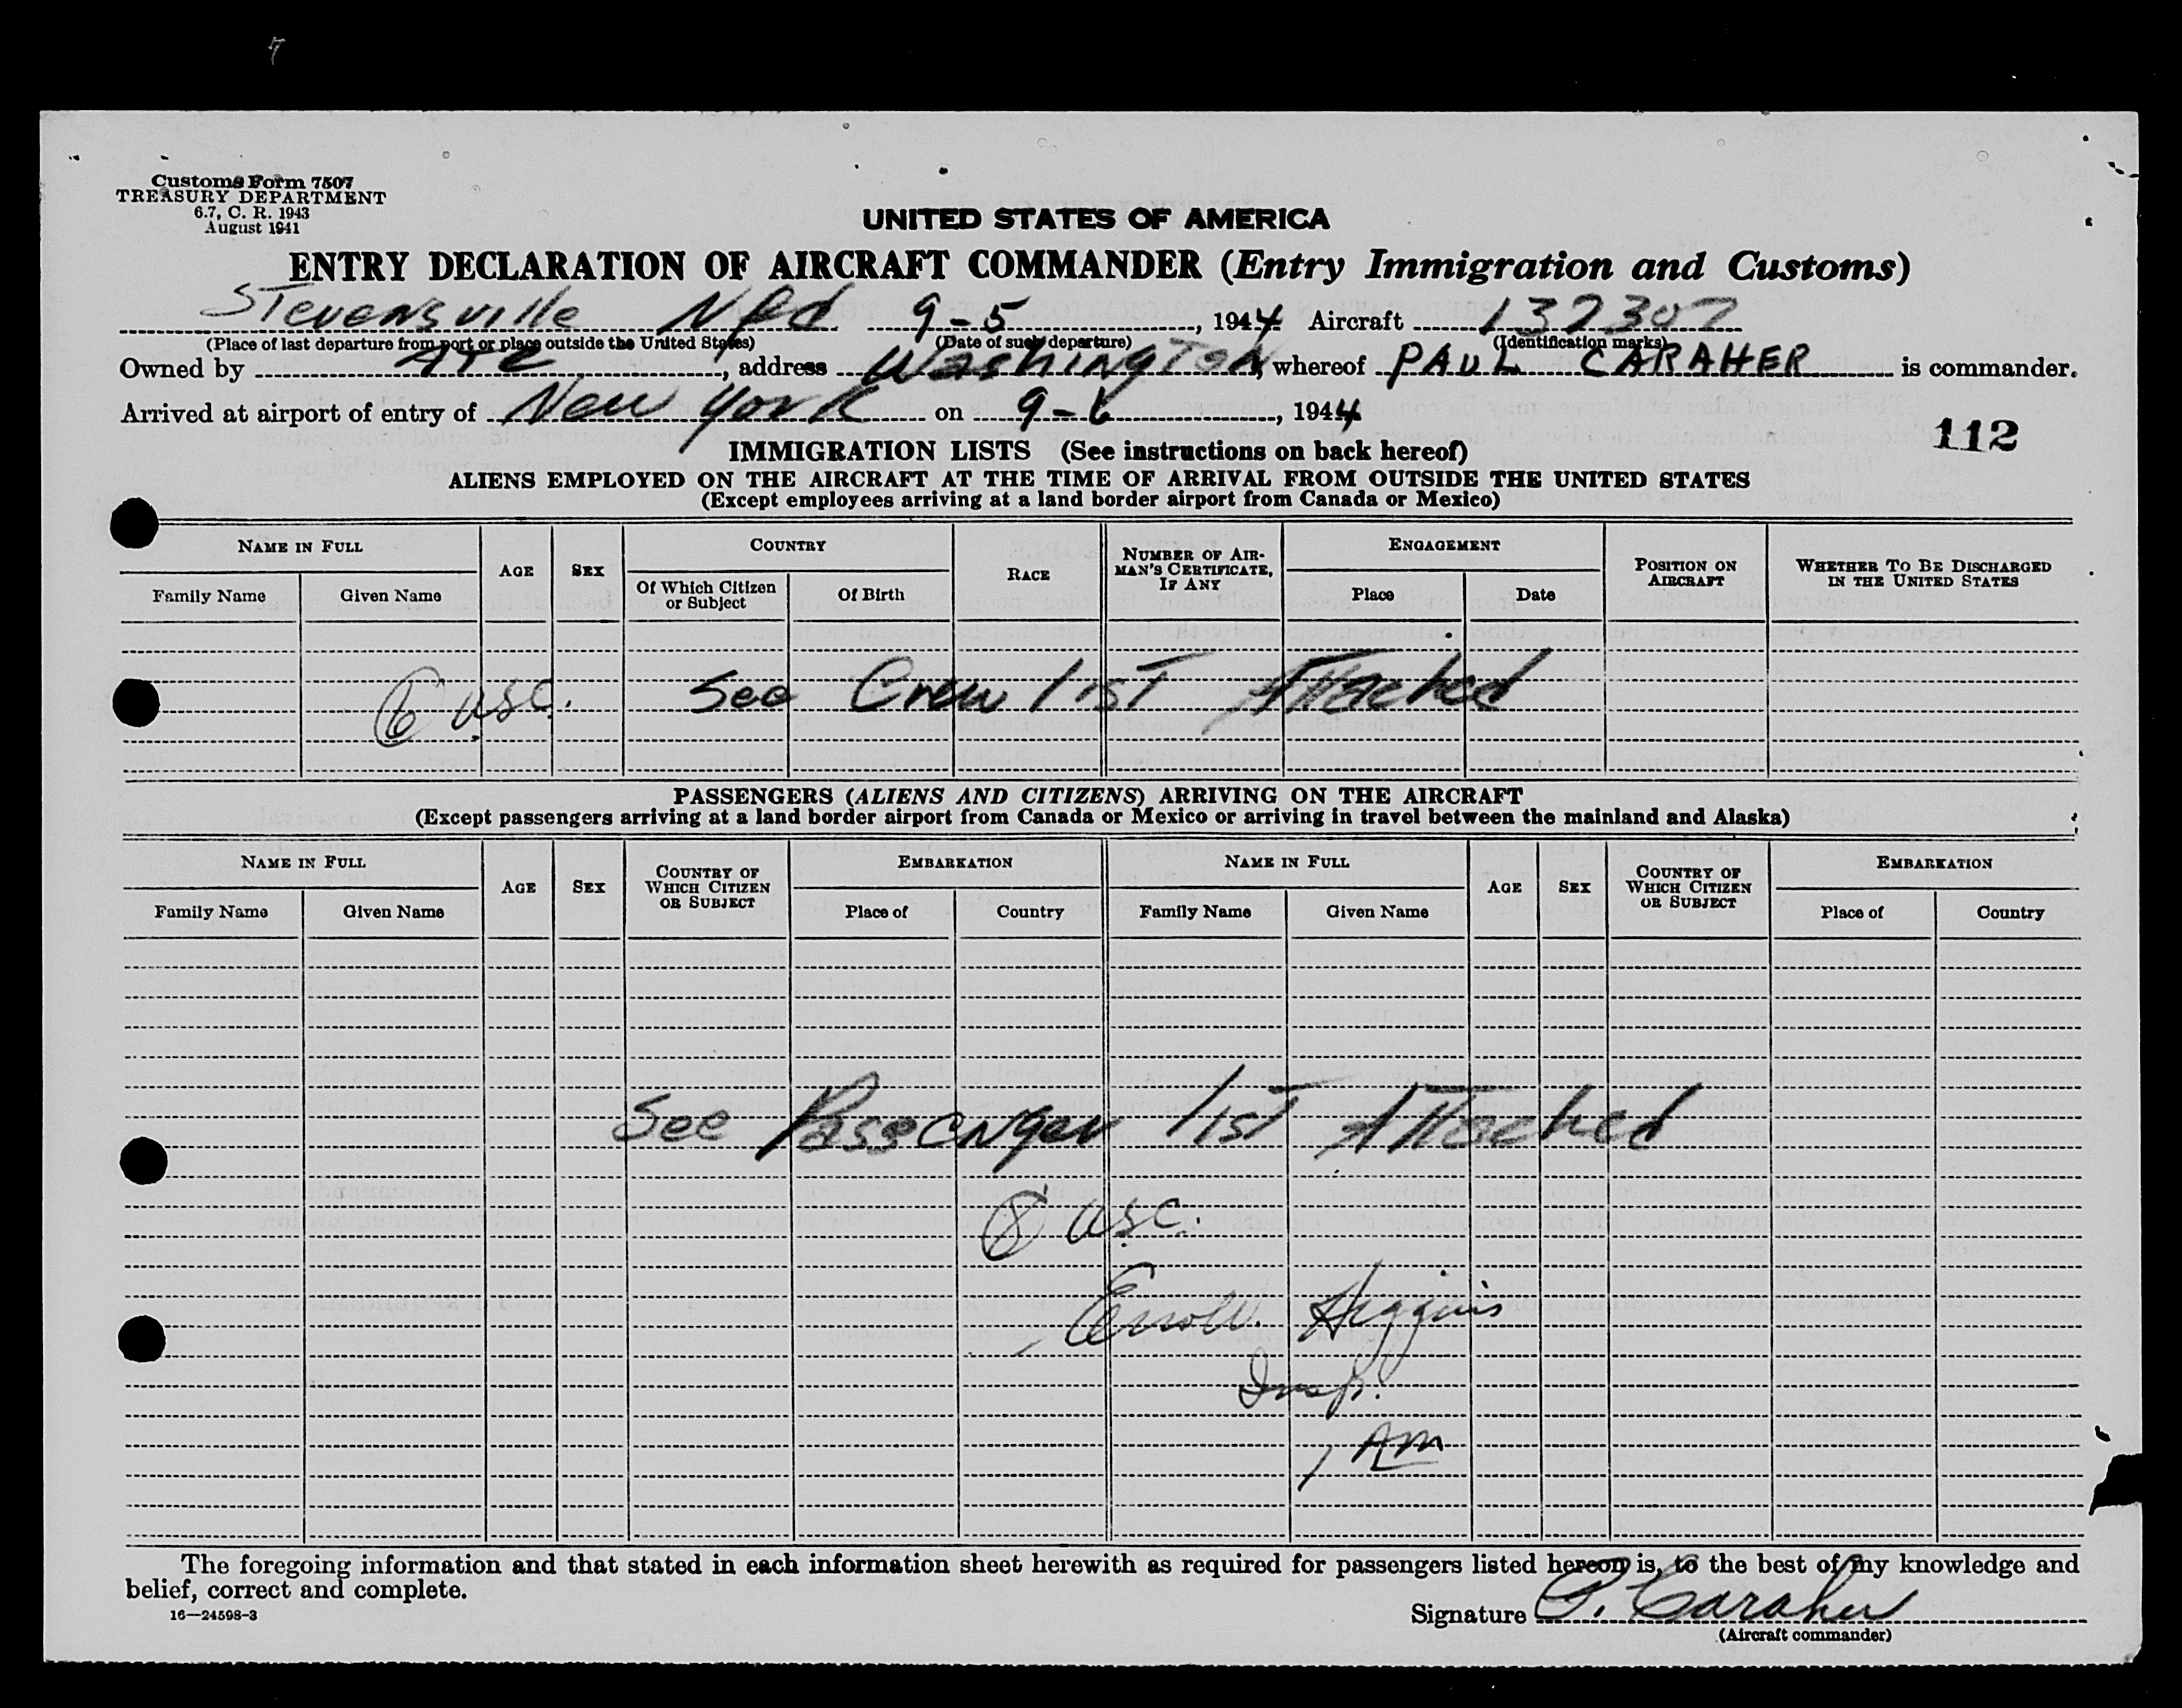 7
Customs Form 7507
TREASURY DEPARTMENT
6.7, C. R. 1943
August 1941
UNITED STATES OF AMERICA
ENTRY DECLARATION OF AIRCRAFT COMMANDER (Entry Immigration and Customs)
Stevensville Nfd 9-5, 1944 Aircraft 137307
(Place of last departure from port or place outside the United States) (Date of such departure) (Identification marks)
Owned by ATC, address Washington, whereof PAUL CARAHER is commander.
Arrived at airport of entry of New York on 9-6, 1944
112
IMMIGRATION LISTS (See instructions on back hereof)
ALIENS EMPLOYED ON THE AIRCRAFT AT THE TIME OF ARRIVAL FROM OUTSIDE THE UNITED STATES
(Except employees arriving at a land border airport from Canada or Mexico)
NAME IN FULL AGE SEX COUNTRY RACE NUMBER OF AIRMAN'S CERTIFICATE, IF ANY ENGAGEMENT POSITION ON AIRCRAFT WHETHER TO BE DISCHARGED IN THE UNITED STATES
Family Name Given Name Of Which Citizen or Subject Of Birth Place Date
6 USC. See Crew list Attached
PASSENGERS (ALIENS AND CITIZENS) ARRIVING ON THE AIRCRAFT
(Except passengers arriving at a land border airport from Canada or Mexico or arriving in travel between the mainland and Alaska)
NAME IN FULL AGE SEX COUNTRY OF WHICH CITIZEN OR SUBJECT EMBARKATION NAME IN FULL AGE SEX COUNTRY OF WHICH CITIZEN OR SUBJECT EMBARKATION
Family Name Given Name Place of Country Family Name Given Name Place of Country
See Passenger list Attached
8 USC.
Higgins
Insp.
1 AM
The foregoing information and that stated in each information sheet herewith as required for passengers listed hereon is, to the best of my knowledge and
belief, correct and complete.
16—24598-3
Signature P. Caraher
(Aircraft commander)